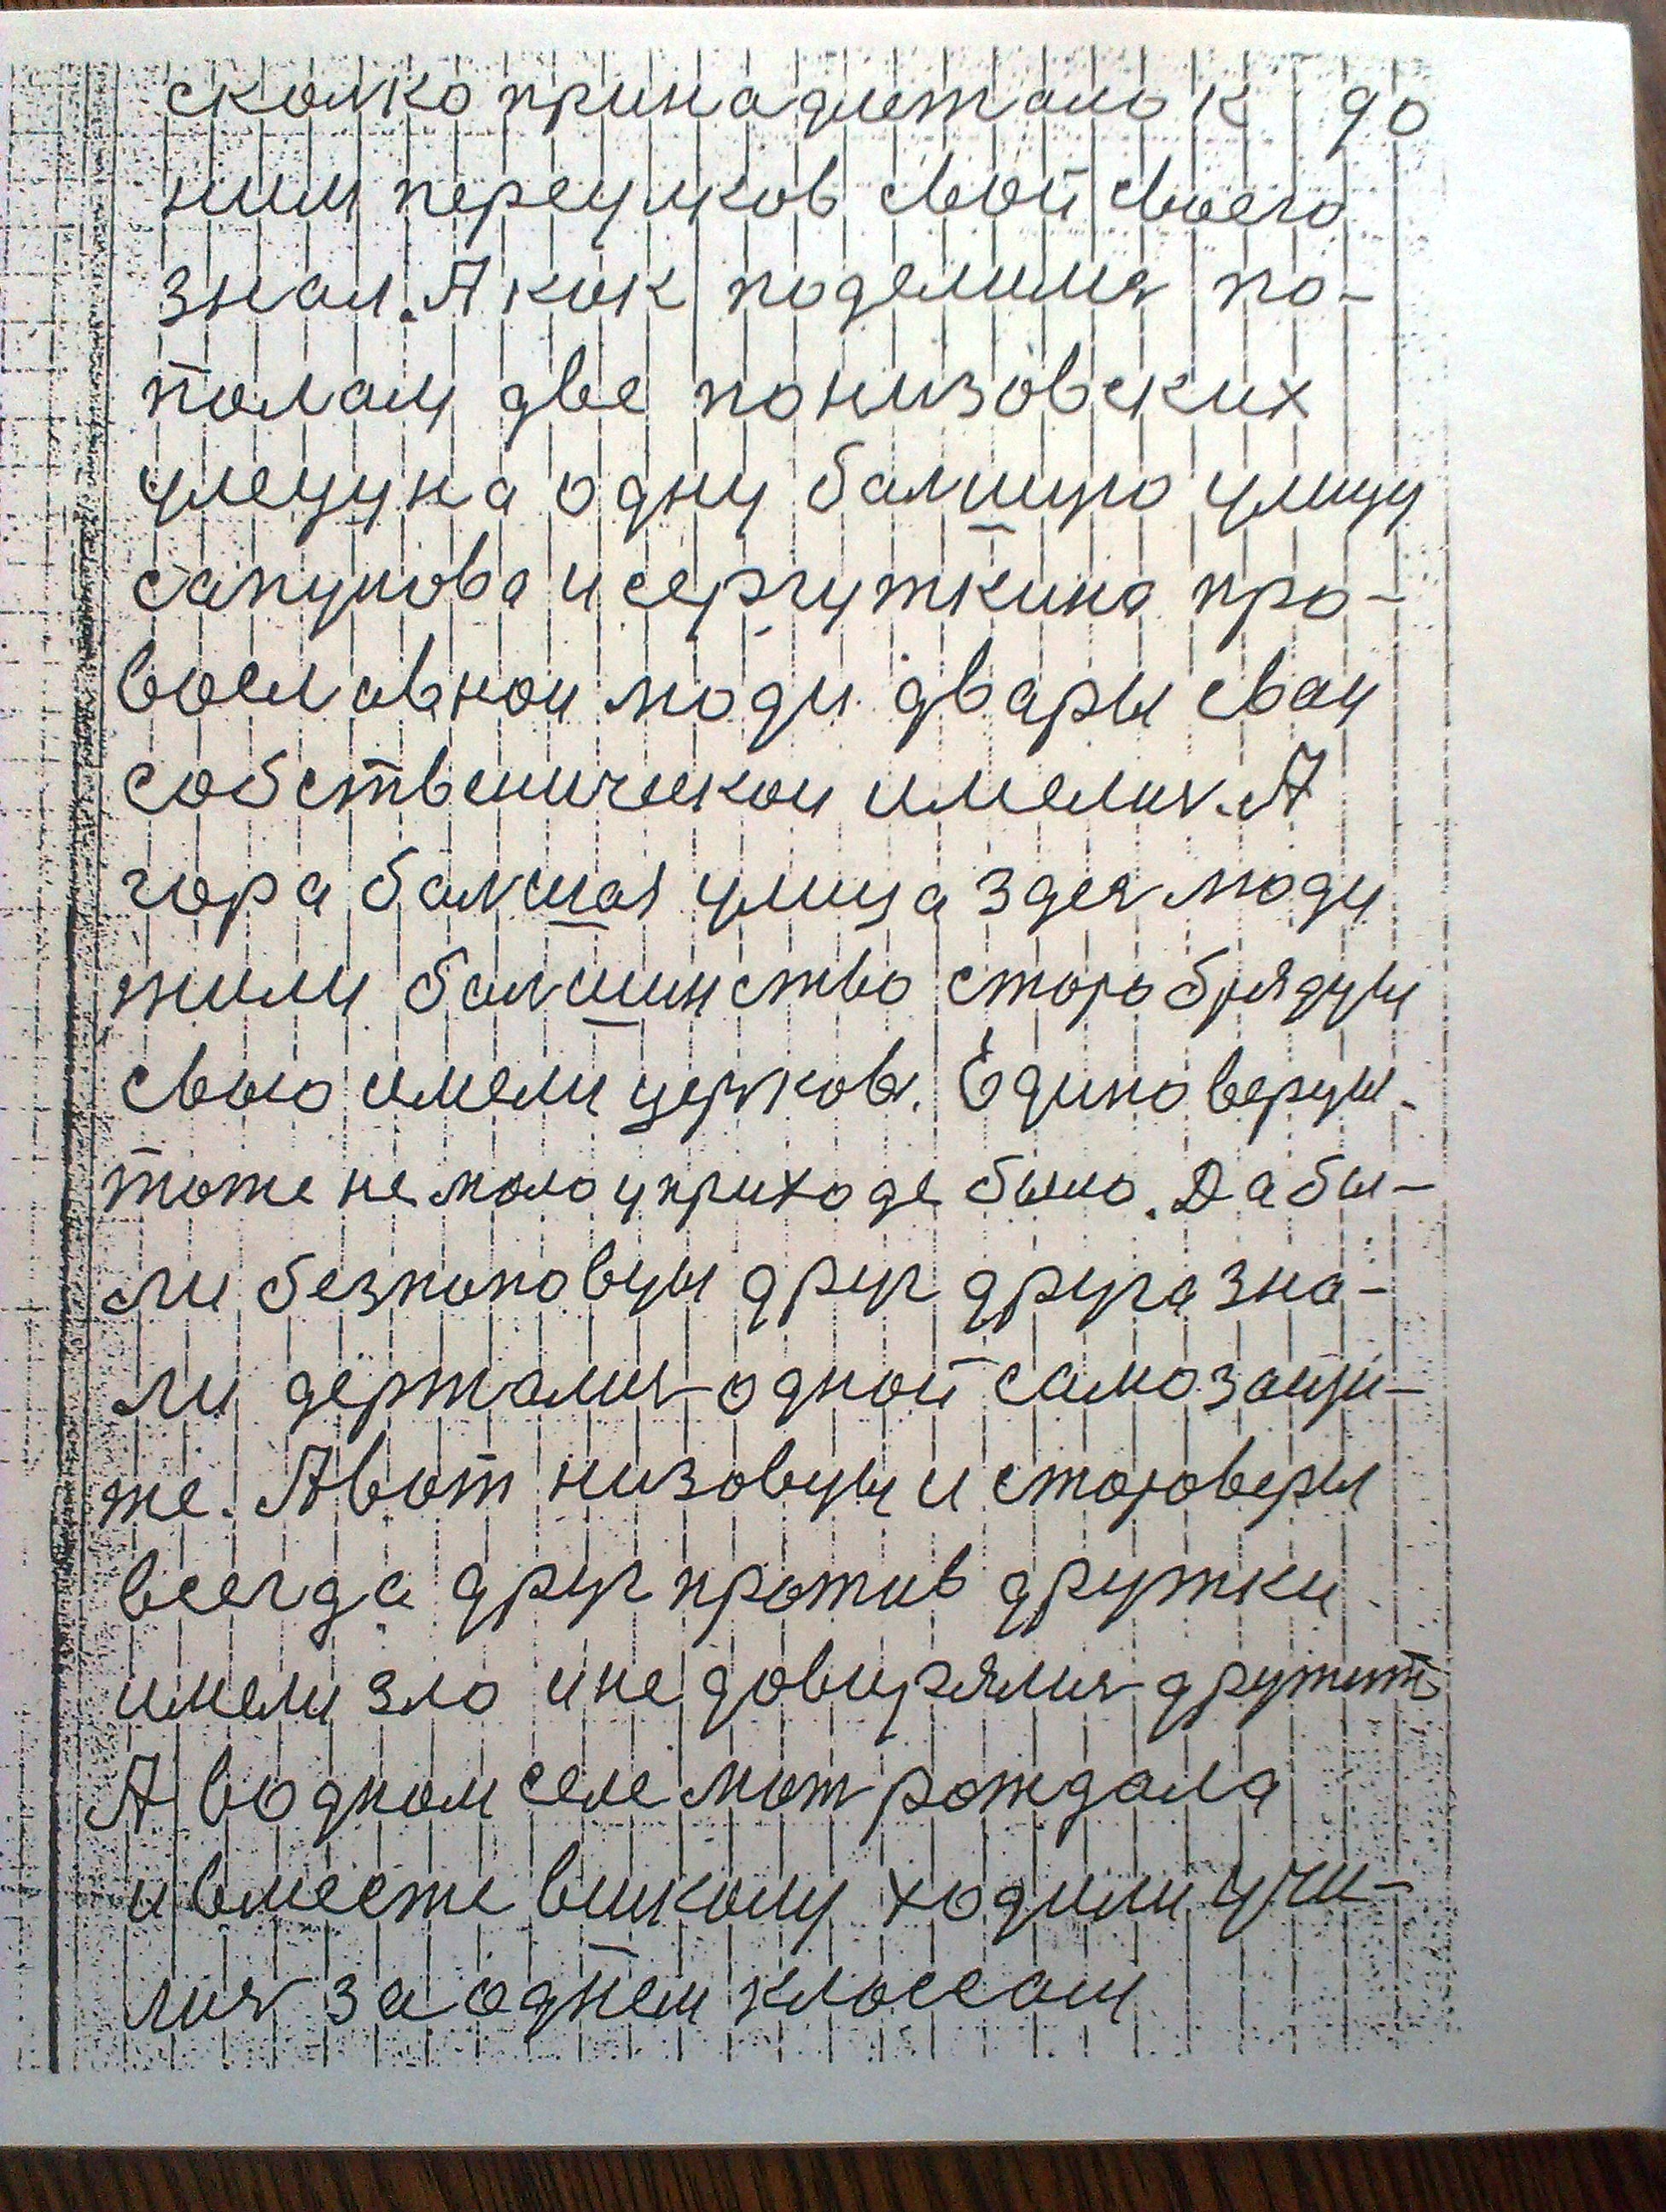 сколко принадлежало к 90
ним переулков свой своего
знал. А как поделилия по-
полам две понизовских
улецу на одну балшую улицу
сапунова и сергушкина про-
вославнои люди двары сваи
собственическои имелия. А
гора балшая улица здея люди
жили балшинство старобрядцы
свою имели церковь. Единоверцы
тоже не мало у приходе было. Да бы-
ли безпоповцы друг друга зна-
ли держалия одной самозащи-
те. А вот низовцы и староверы
всегда друг против дружки
имели зло и не довирялия дружит
А водном селе мат рождала
и вместе вшколу ходили учи-
лия за однем классам